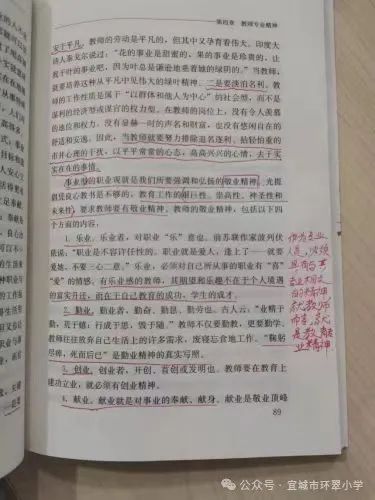 第四章 教师专业精神
安于平凡。教师的劳动是平凡的，但其中又孕育着伟大。印度大
诗人泰戈尔说过："花的事业是甜蜜的，果的事业是珍贵的，让
我干叶的事业吧，因为叶总是谦逊地垂着她的绿荫的。"当教师，
就要培养这种从平凡中见伟大的绿叶精神。二是要淡泊名利。教
师的工作性质是属于"以群体和他人为中心"的社会型，而不是
谋利的经济型或谋官的权力型。在教师的岗位上，没有令人羡慕
的地位和权力，没有显赫一时的声名和财富，也没有悠闲自在的
舒适和安逸。因此，当教师就要努力排除追名逐利、拈轻怕重的
市井心理的干扰，以平平常常的心态，高高兴兴的心情，去干实
实在在的事情。
事业型的职业观就是我们所要强调和弘扬的敬业精神。光振
倡贤良心教书是不够的，教育工作的艰巨性、崇高性、神圣性和
未来性，要求教师要有敬业精神。教师的敬业精神，包括以下四
个方面的内容：
1. 乐业。乐业者，对职业"乐"意也。前苏联作家波列伏
依说："职业是不容许任性的。职业就是爱人，逢上了——就要
爱她，不要三心二意。"乐业，必须对自己所从事的职业有"喜"
"爱"的情感。有乐业感的教师，其期望和乐趣不在于个人境遇
的富实升迁，而在于自己教育的成功，学生的成才。
2. 勤业。勤业者，勤奋、勤恳、勤劳也。古人云："业精于
勤，荒于嬉；行成于思，毁于随。"教师不仅要勤教，更要勤学。
教师往往放弃自己生活上的许多需求，废寝忘食地工作。"鞠躬
尽瘁，死而后已"是勤业精神的真实写照。
3. 创业。创业者，开创、首创或发明也。教师要在教育上
建功立业，就必须有创业精神。
4. 献业。献业就是对事业的奉献、献身。献业是敬业顶峰
89
作为专业
人员，必须
具有与专
业相
的精神
就教师
而言，就
是教师专
业精神
公众号·宜城市环翠小学